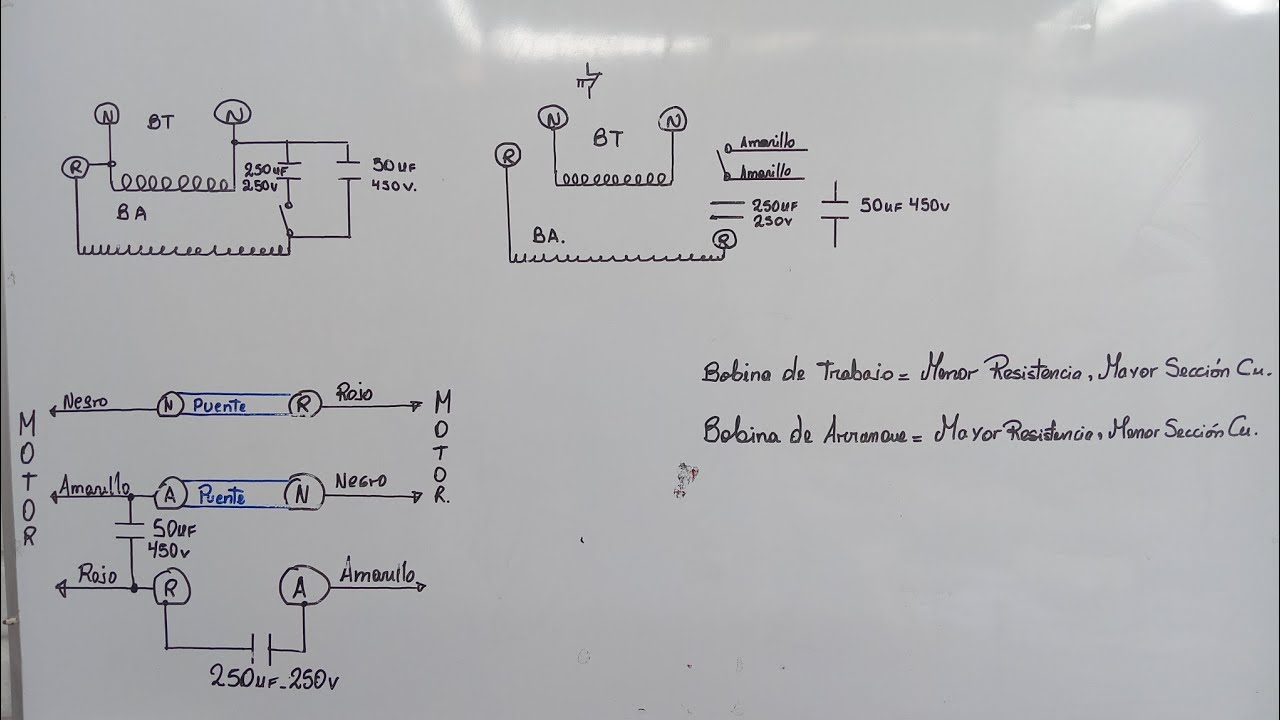 N BT N
R
250uF
250v
50uF
450v.
BA
N BT N
R
Amarillo
Amarillo
250uF
250v
50uF 450v
R
BA.
Bobina de Trabajo = Menor Resistencia, Mayor Sección Cu.
Bobina de Arranque = Mayor Resistencia, Menor Sección Cu.
MOTOR
Negro N Puente R Rojo
Amarillo A Puente N Negro
50uF
450v
Rojo R A Amarillo
250uF-250v
MOTOR.